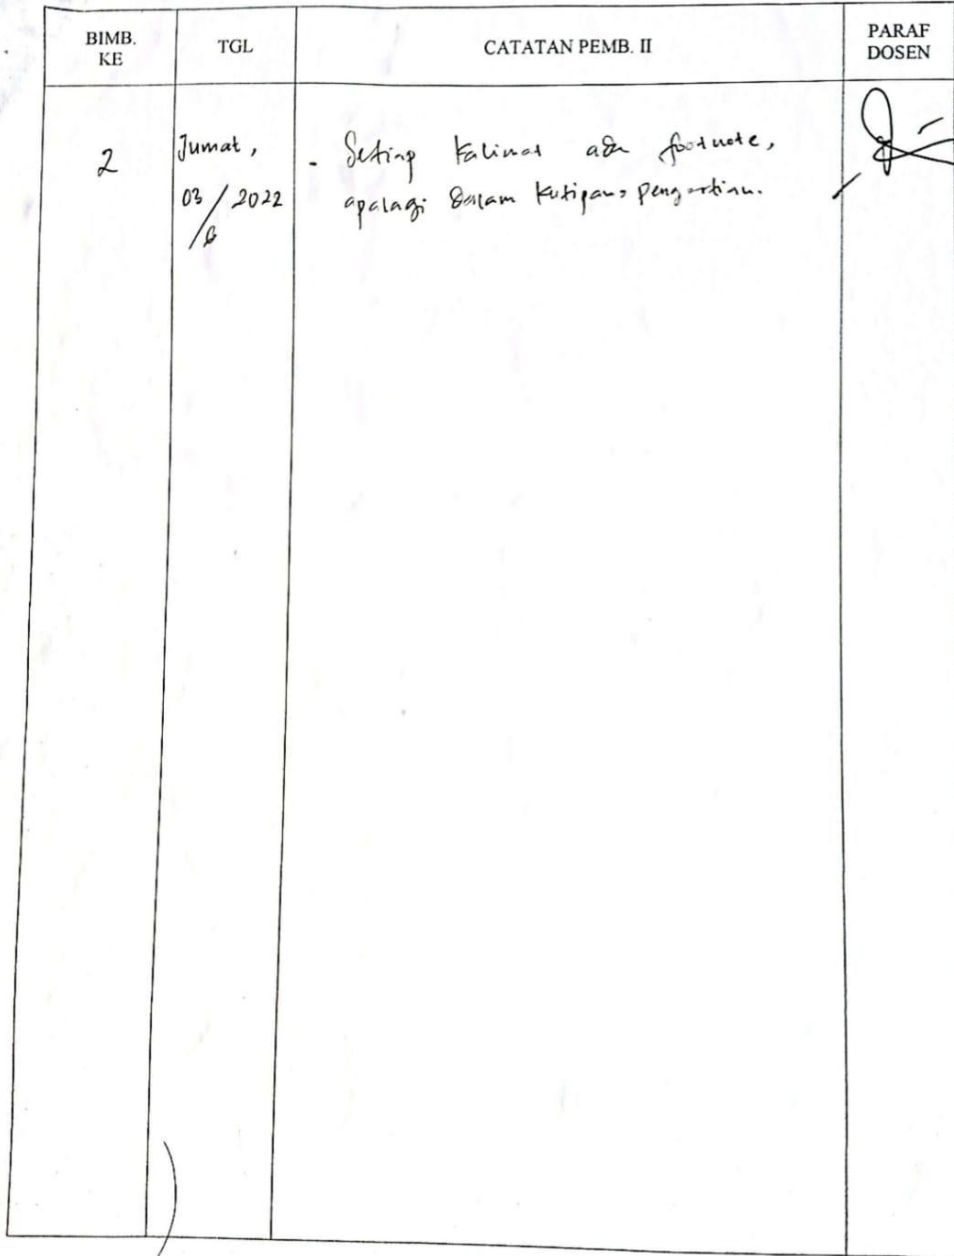 BIMB. KE TGL CATATAN PEMB. II PARAF DOSEN
2 Jumat, - Setiap kalimat ada footnote,
03/6/2022 apalagi dalam kutipan, pengertian.